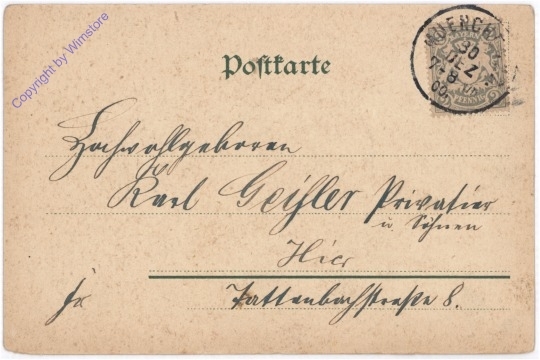 Copyright by Wimstore
Postkarte
MUENCH
30
DEZ
7-8
00
BAYERN
PFENNIG
Hochwohlgeboren
Karl Geißler Privatier
u. Söhnen
Hier
Tattenbachstraße 8.